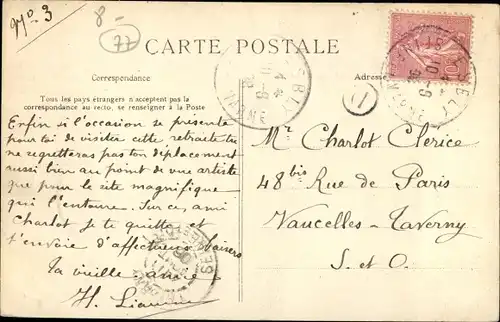 No. 3
8-
77
CARTE POSTALE
Correspondance
Adresse
Tous les pays étrangers n'acceptent pas la
correspondance au recto, se renseigner à la Poste
Enfin si l'occasion se présente
pour toi de visiter cette retraite tu
ne regretteras pas ton déplacement
aussi bien au point de vue artiste
que pour le site magnifique
qui l'entoure. Sur ce, ami
Charlot je te quitte et
t'envoie d'affectueux baisers
Ta vieille amie
H.
Mr Charlot Clerice
48 bis Rue de Paris
Vaucelles-Taverny
S. et O.
MARNE
10